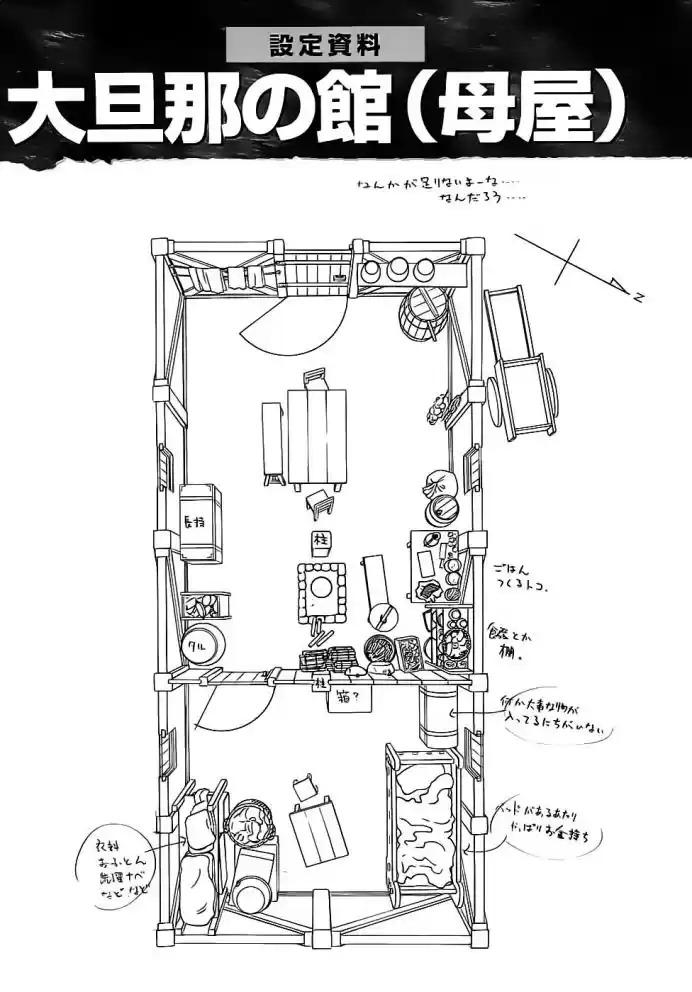 設定資料
大旦那の館(母屋)
なんかが足りないよーな‥‥
なんだろう‥‥
N
長持
柱
ごはん
つくるトコ.
食器とか
棚.
タル
柱
箱?
何か大事な物が
入ってるにちがいない
ベッドがあるあたり
やっぱりお金持ち
衣料
おふとん
洗濯ナベ
などなど